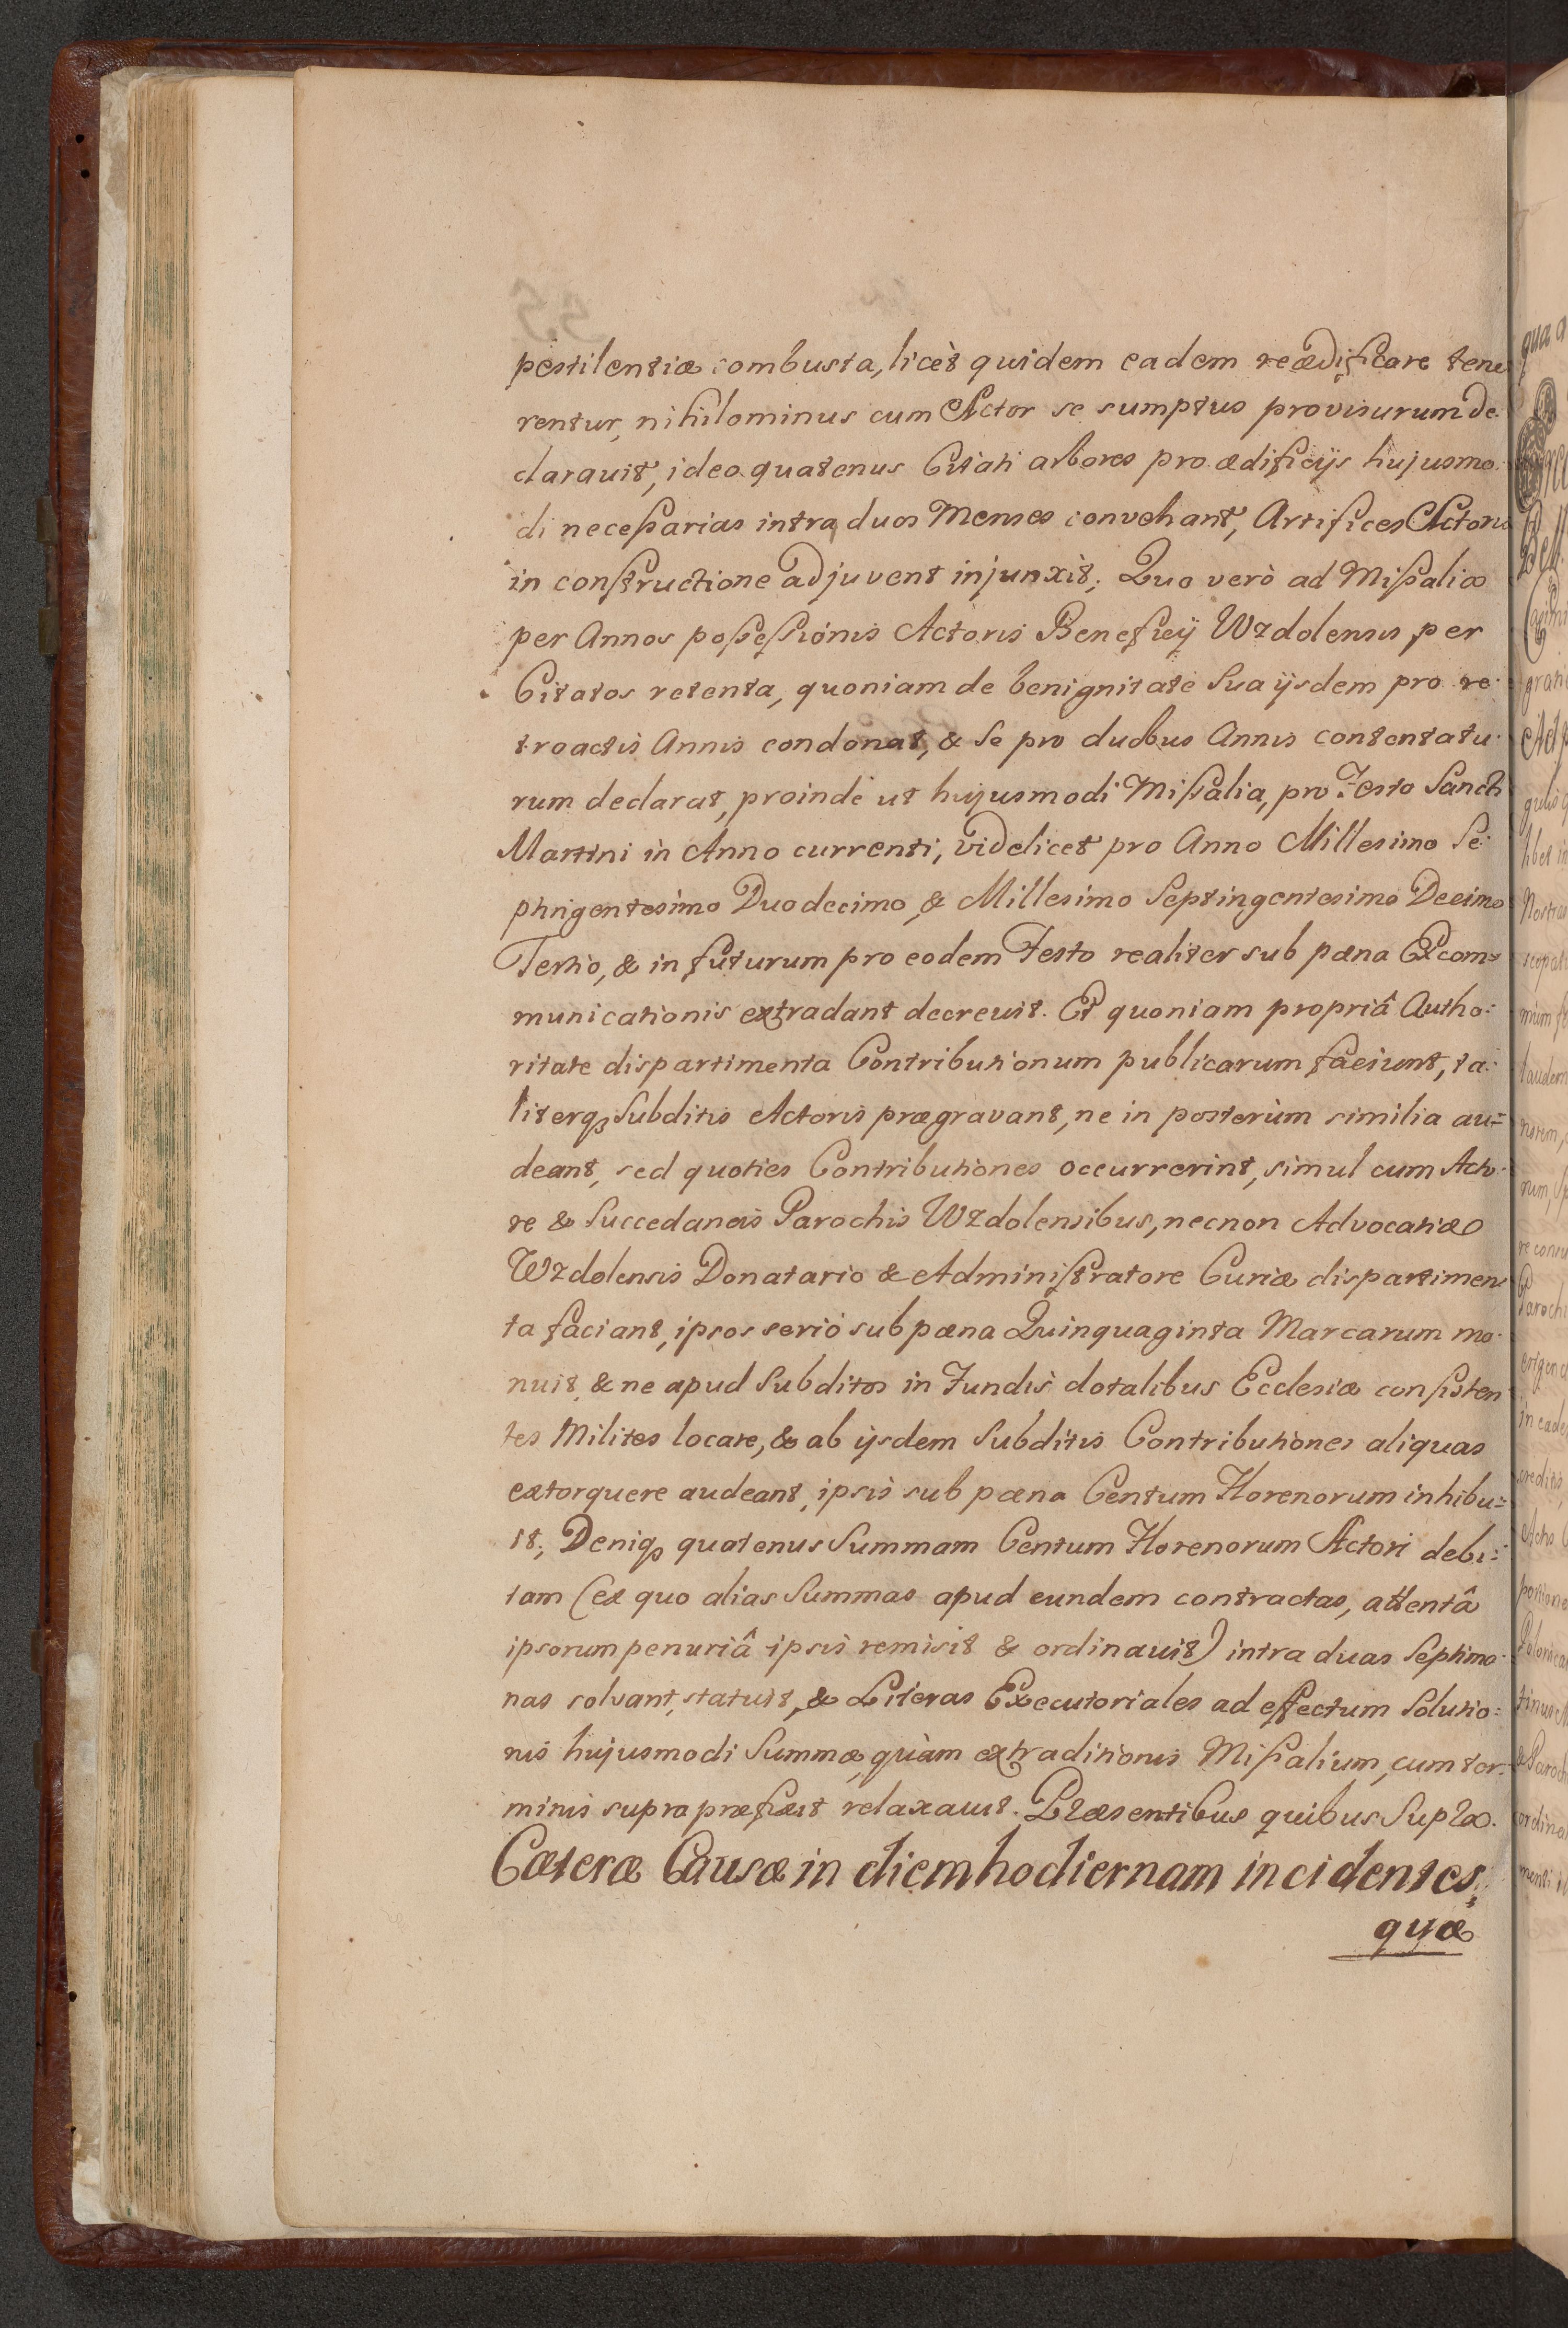 pestilentiæ combusta, licèt quidem eadem reædificare tene
rentur, nihilominus cum Actor se sumptus provisurum de:
clarauit, ideo quatenus Citati arbores pro ædificijs hujusmo:
di necessarias intra duos Menses convehant, Artifices Actoris
in constructione adjuvent injunxit; Quo verò ad Missalia
per Annos possessionis Actoris Beneficij Wzdolensis per
Citatos retenta, quoniam de benignitate sua ijsdem pro re:
troactis Annis condonat, & se pro duobus Annis contentatu:
rum declarat, proinde ut hujusmodi Missalia, pro Festo Sancti
Martini in Anno currenti, videlicet pro Anno Millesimo Se:
ptingentesimo Duodecimo, & Millesimo Septingentesimo Decimo
Tertio, & in futurum pro eodem Festo realiter sub pœna Excom=
municationis extradant decreuit. Et quoniam propriâ Autho:
ritate dispartimenta Contributionum publicarum faciunt, ta:
literqꝫ Subditis Actoris prægravant, ne in posterùm similia au=
deant, sed quoties Contributiones occurrerint, simul cum Acto:
re & Succedaneis Parochis Wzdolensibus, necnon Advocatiæ
Wzdolensis Donatario & Administratore Curiæ dispartimen
ta faciant, ipsos seriò sub pœna Quinquaginta Marcarum mo:
nuit, & ne apud Subditos in Fundis dotalibus Ecclesiæ consisten
tes Milites locare, & ab ijsdem Subditis Contributiones aliquas
extorquere audeant, ipsis sub pœna Centum Florenorum inhibu=
it; Deniqꝫ quatenus Summam Centum Florenorum Actori debi=
tam (ex quo alias Summas apud eundem contractas, attentâ
ipsorum penuriâ ipsis remisit & ordinauit) intra duas Septima:
nas solvant, statuit, & Literas Executoriales ad effectum Solutio=
nis hujusmodi Summæ, quàm extraditionis Missalium, cum ter:
minis supra præfixit relaxauit. Præsentibus quibus Supra.
Cæteræ Causæ in diem hodiernam incidentes,
quæ